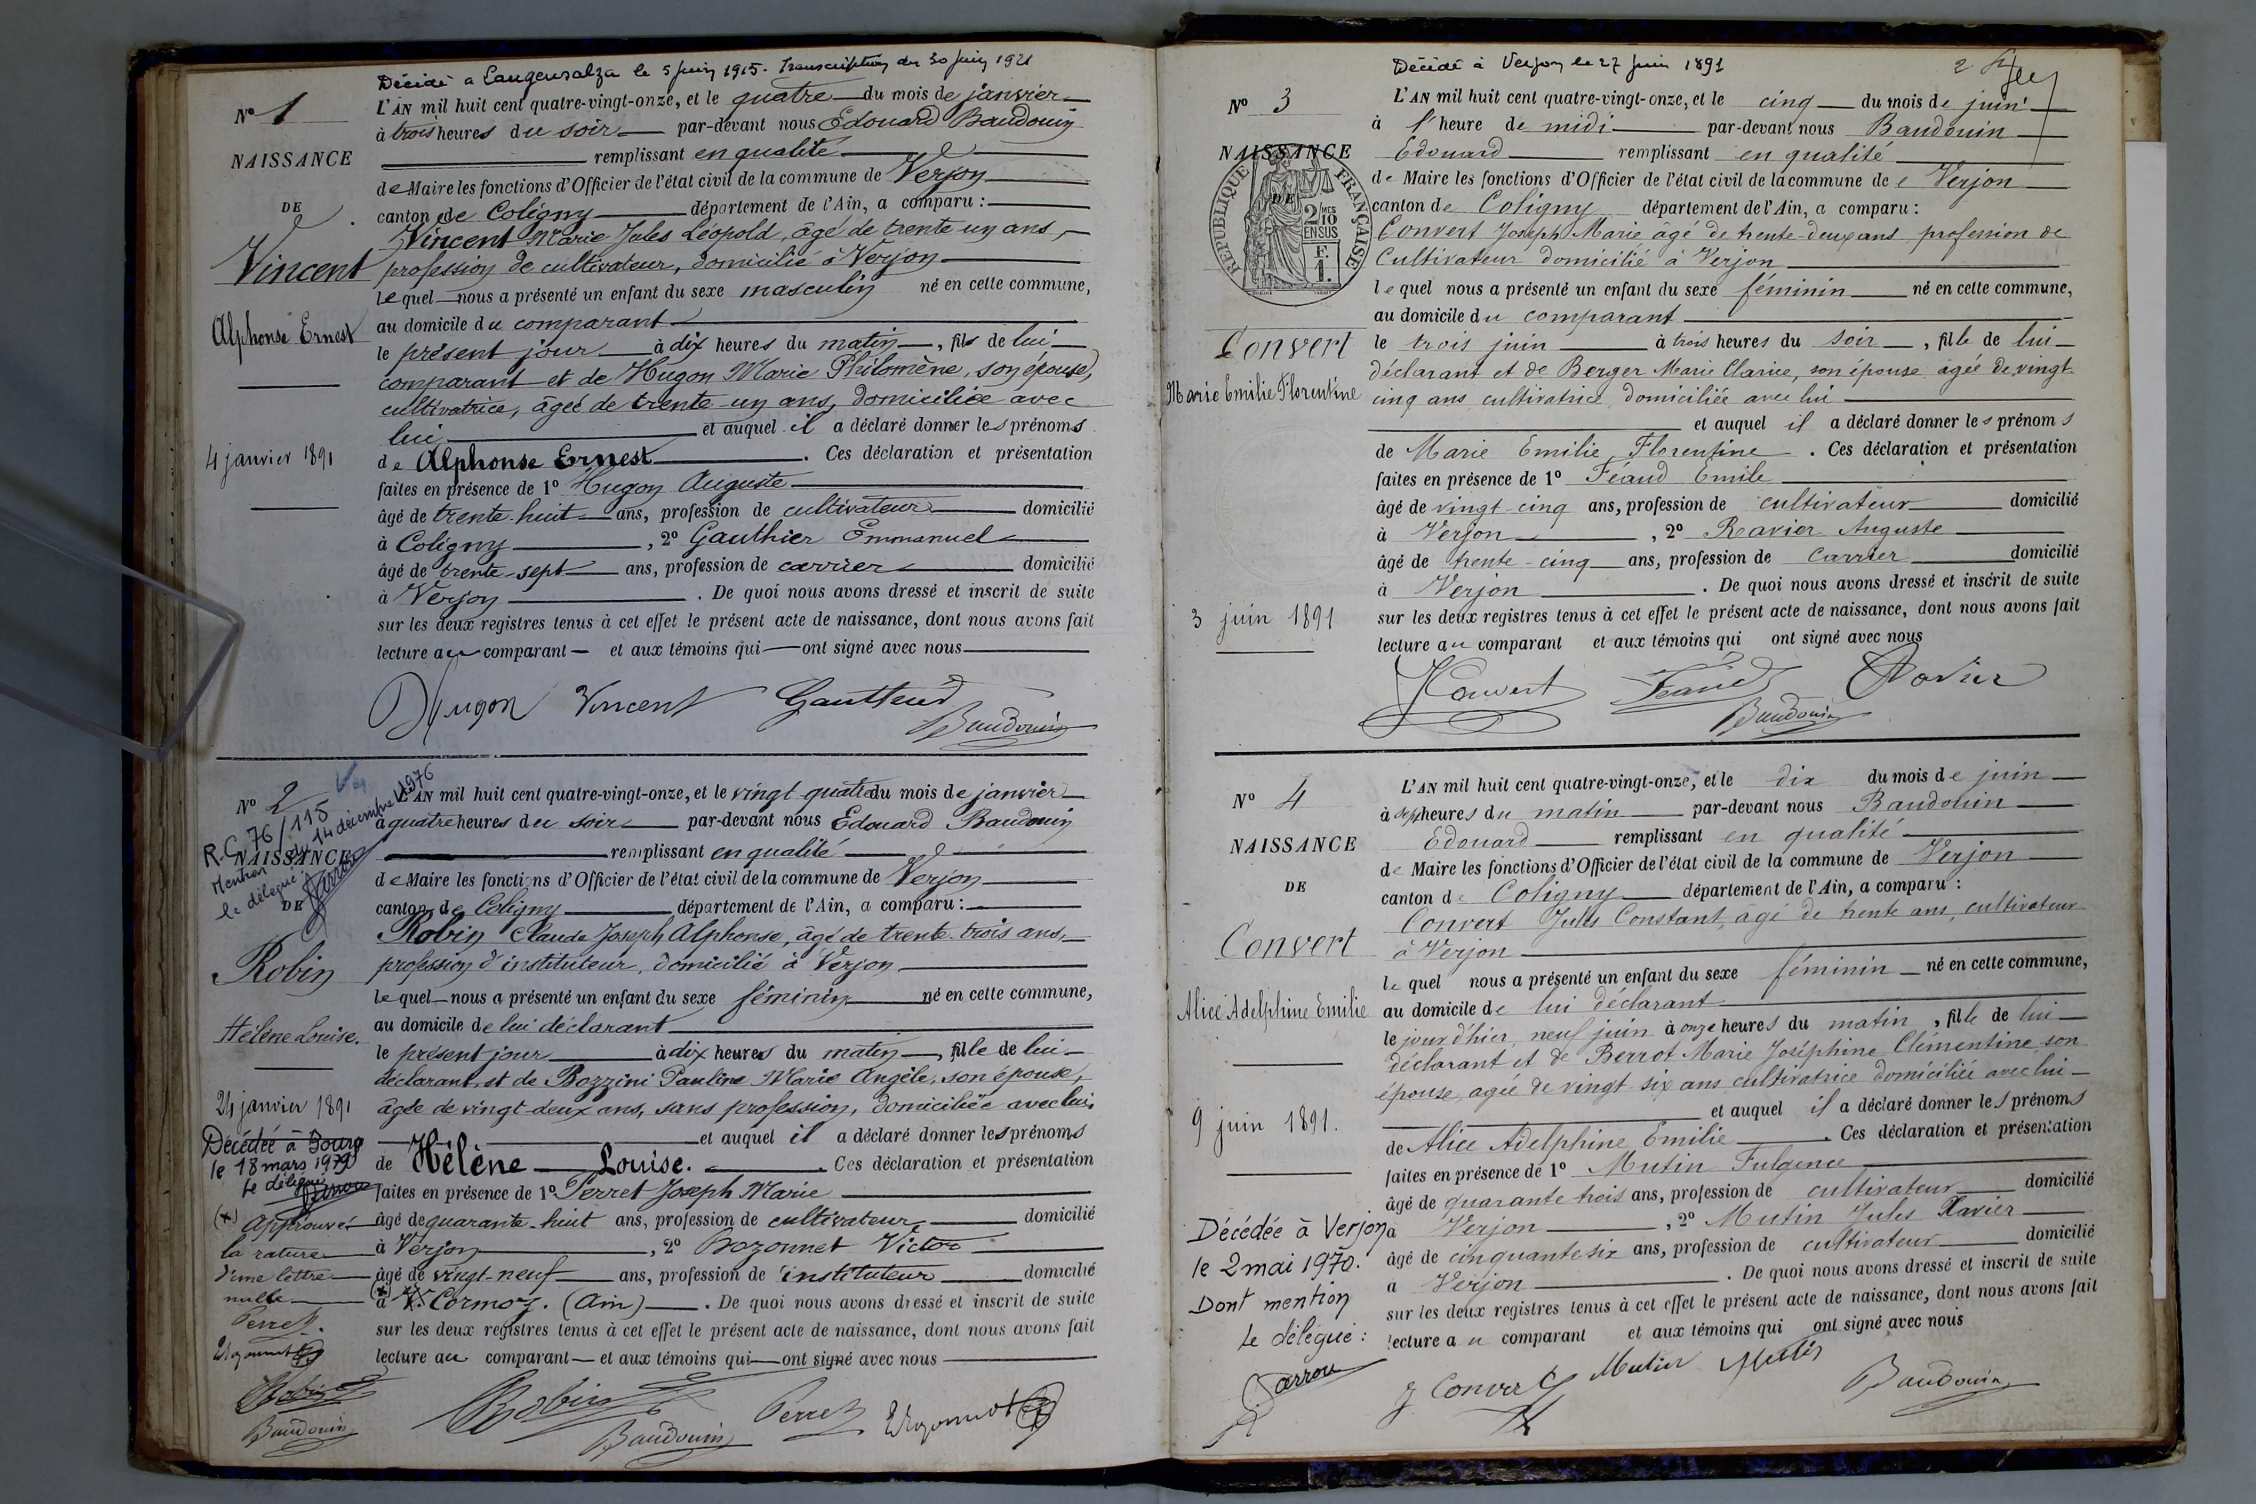 Décédé a Langensalza le 5 juin 1915. Transcription du 30 juin 1921
N° 1
NAISSANCE
DE
Vincent
Alphonse Ernest
4 janvier 1891
L'AN mil huit cent quatre-vingt-onze, et le quatre du mois de janvier
à trois heures du soir par-devant nous Edouard Baudouin
remplissant en qualité
de Maire les fonctions d'Officier de l'état civil de la commune de Verjon
canton de Coligny département de l'Ain, a comparu :
Vincent Marie Jules Léopold, âgé de trente un ans,
profession de cultivateur, domicilié à Verjon
lequel nous a présenté un enfant du sexe masculin né en cette commune,
au domicile du comparant
le présent jour à dix heures du matin, fils de lui
comparant et de Hugon Marie Philomène, son épouse,
cultivatrice, âgée de trente-un ans, domiciliée avec
lui et auquel il a déclaré donner les prénoms
de Alphonse Ernest. Ces déclaration et présentation
faites en présence de 1° Hugon Auguste
âgé de trente-huit ans, profession de cultivateur domicilié
à Coligny, 2° Gauthier Emmanuel
âgé de trente-sept ans, profession de carrier domicilié
à Verjon. De quoi nous avons dressé et inscrit de suite
sur les deux registres tenus à cet effet le présent acte de naissance, dont nous avons fait
lecture au comparant et aux témoins qui ont signé avec nous
Hugon Vincent
Baudouin
N° 2
R.C. 76/115
Mention du 14 décembre 1976
le délégué :
NAISSANCE
DE
Robin
Hélène Louise.
24 janvier 1891
Décédée à Bourg
le 18 mars 1979
Le délégué
(+) Approuvé
la rature
d'une lettre
nulle
Perret
Robin
Baudouin
L'AN mil huit cent quatre-vingt-onze, et le vingt-quatre du mois de janvier
à quatre heures du soir par-devant nous Edouard Baudouin
remplissant en qualité
de Maire les fonctions d'Officier de l'état civil de la commune de Verjon
canton de Coligny département de l'Ain, a comparu :
Robin Claude Joseph Alphonse, âgé de trente-trois ans,
profession d'instituteur, domicilié à Verjon
lequel nous a présenté un enfant du sexe féminin né en cette commune,
au domicile de lui déclarant
le présent jour à dix heures du matin, fille de lui
déclarant, et de Bozzini Pauline Marie Angèle, son épouse,
âgée de vingt-deux ans, sans profession, domiciliée avec lui,
et auquel il a déclaré donner les prénoms
de Hélène Louise. Ces déclaration et présentation
faites en présence de 1° Perret Joseph Marie
âgé de quarante-huit ans, profession de cultivateur domicilié
à Verjon, 2° Bozonnet Victor
âgé de vingt-neuf ans, profession de instituteur domicilié
(+) à Cormoz. (Ain). De quoi nous avons dressé et inscrit de suite
sur les deux registres tenus à cet effet le présent acte de naissance, dont nous avons fait
lecture au comparant et aux témoins qui ont signé avec nous
Robin Baudouin Perret
Décédé à Verjon le 27 juin 1891
2
N° 3
NAISSANCE
DE
RÉPUBLIQUE FRANÇAISE
2/10 MES
EN SUS
F.
1.
Convert
Marie Emilie Florentine
3 juin 1891
L'AN mil huit cent quatre-vingt-onze, et le cinq du mois de juin
à l'heure de midi par-devant nous Baudouin
Edouard remplissant en qualité
de Maire les fonctions d'Officier de l'état civil de la commune de Verjon
canton de Coligny département de l'Ain, a comparu :
Convert Joseph Marie âgé de trente-deux ans profession de
Cultivateur domicilié à Verjon
lequel nous a présenté un enfant du sexe féminin né en cette commune,
au domicile du comparant
le trois juin à trois heures du soir, fille de lui
déclarant et de Berger Marie Clarice, son épouse agée de vingt
cinq ans cultivatrice domiciliée avec lui
et auquel il a déclaré donner les prénoms
de Marie Emilie Florentine. Ces déclaration et présentation
faites en présence de 1° Féaud Emile
âgé de vingt-cinq ans, profession de cultivateur domicilié
à Verjon, 2° Ravier Auguste
âgé de trente-cinq ans, profession de carrier domicilié
à Verjon. De quoi nous avons dressé et inscrit de suite
sur les deux registres tenus à cet effet le présent acte de naissance, dont nous avons fait
lecture au comparant et aux témoins qui ont signé avec nous
J Convert Féaud Ravier
Baudouin
N° 4
NAISSANCE
DE
Convert
Alice Adelphine Emilie
9 juin 1891.
Décédée à Verjon
le 2 mai 1970.
Dont mention
Le délégué :
L'AN mil huit cent quatre-vingt-onze, et le dix du mois de juin
à sept heures du matin par-devant nous Baudouin
Edouard remplissant en qualité
de Maire les fonctions d'Officier de l'état civil de la commune de Verjon
canton de Coligny département de l'Ain, a comparu :
Convert Jules Constant, âgé de trente ans, cultivateur
à Verjon
lequel nous a présenté un enfant du sexe féminin né en cette commune,
au domicile de lui déclarant
le jour d'hier, neuf juin à onze heures du matin, fille de lui
déclarant et de Berrot Marie Joséphine Clémentine son
épouse, agée de vingt-six ans cultivatrice domiciliée avec lui
et auquel il a déclaré donner les prénoms
de Alice Adelphine Emilie. Ces déclaration et présentation
faites en présence de 1° Mutin Fulgence
âgé de quarante trois ans, profession de cultivateur domicilié
à Verjon, 2° Mutin Jules Xavier
âgé de cinquante six ans, profession de cultivateur domicilié
a Verjon. De quoi nous avons dressé et inscrit de suite
sur les deux registres tenus à cet effet le présent acte de naissance, dont nous avons fait
lecture au comparant et aux témoins qui ont signé avec nous
J Convert Mutin Mutin Baudouin